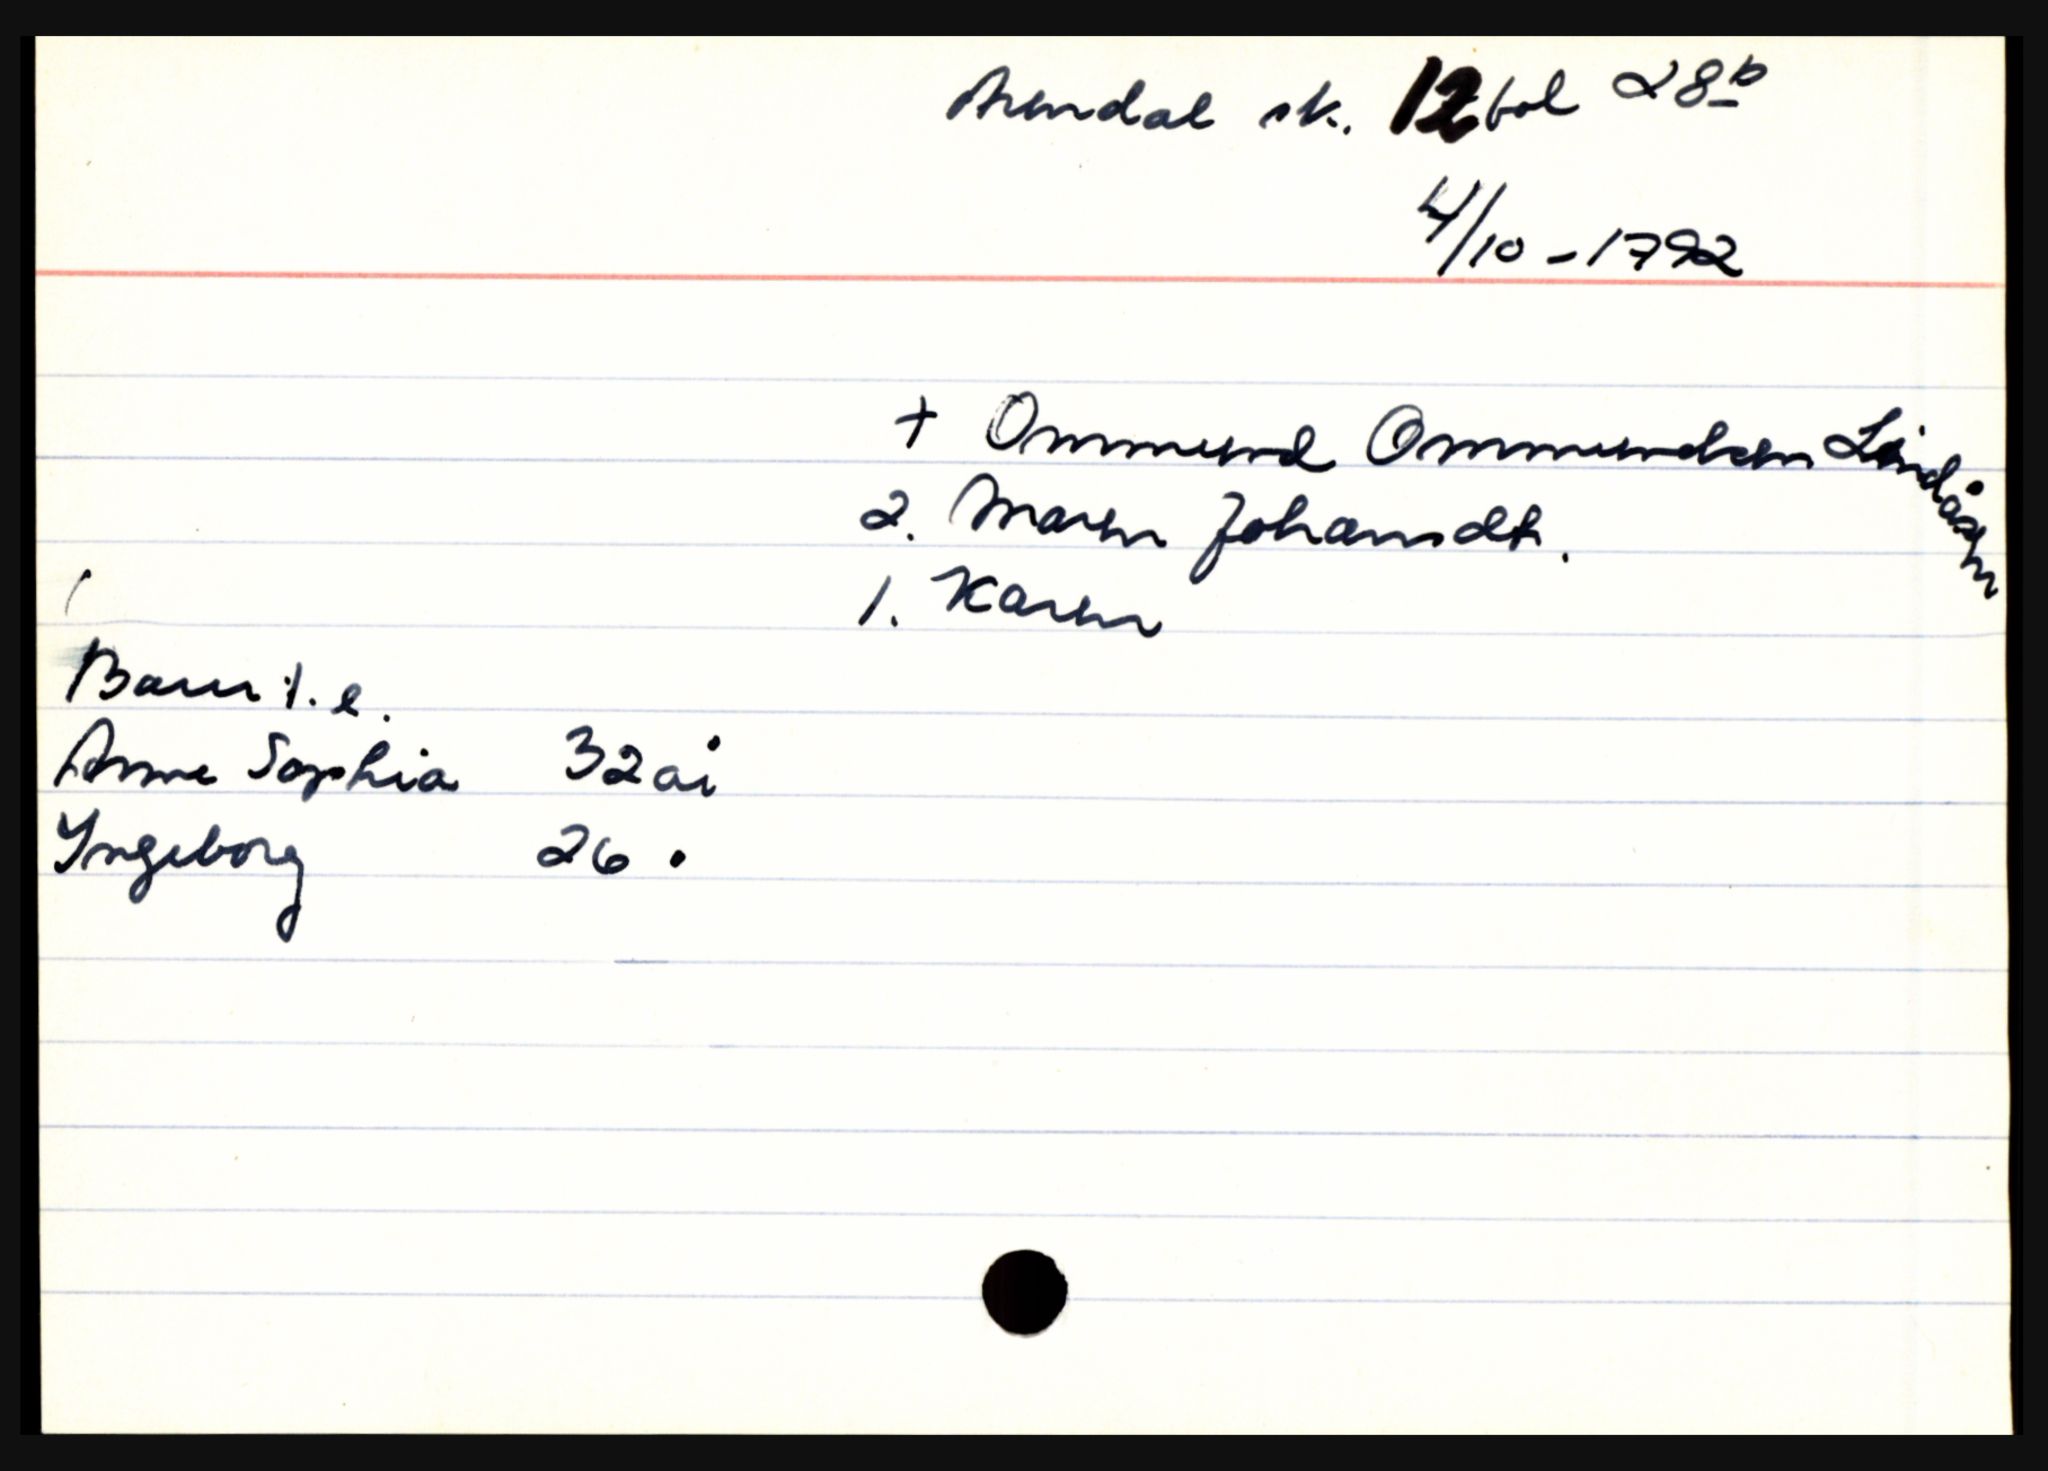 Arendal sk. 12 fol 28b
4/10 - 1792
+ Ommund Ommundsen Lindåsen
2. Maren Johansdt.
1. Karen
Barn 1. e.
Anne Sophia 32 åi
Yngeborg 26 •